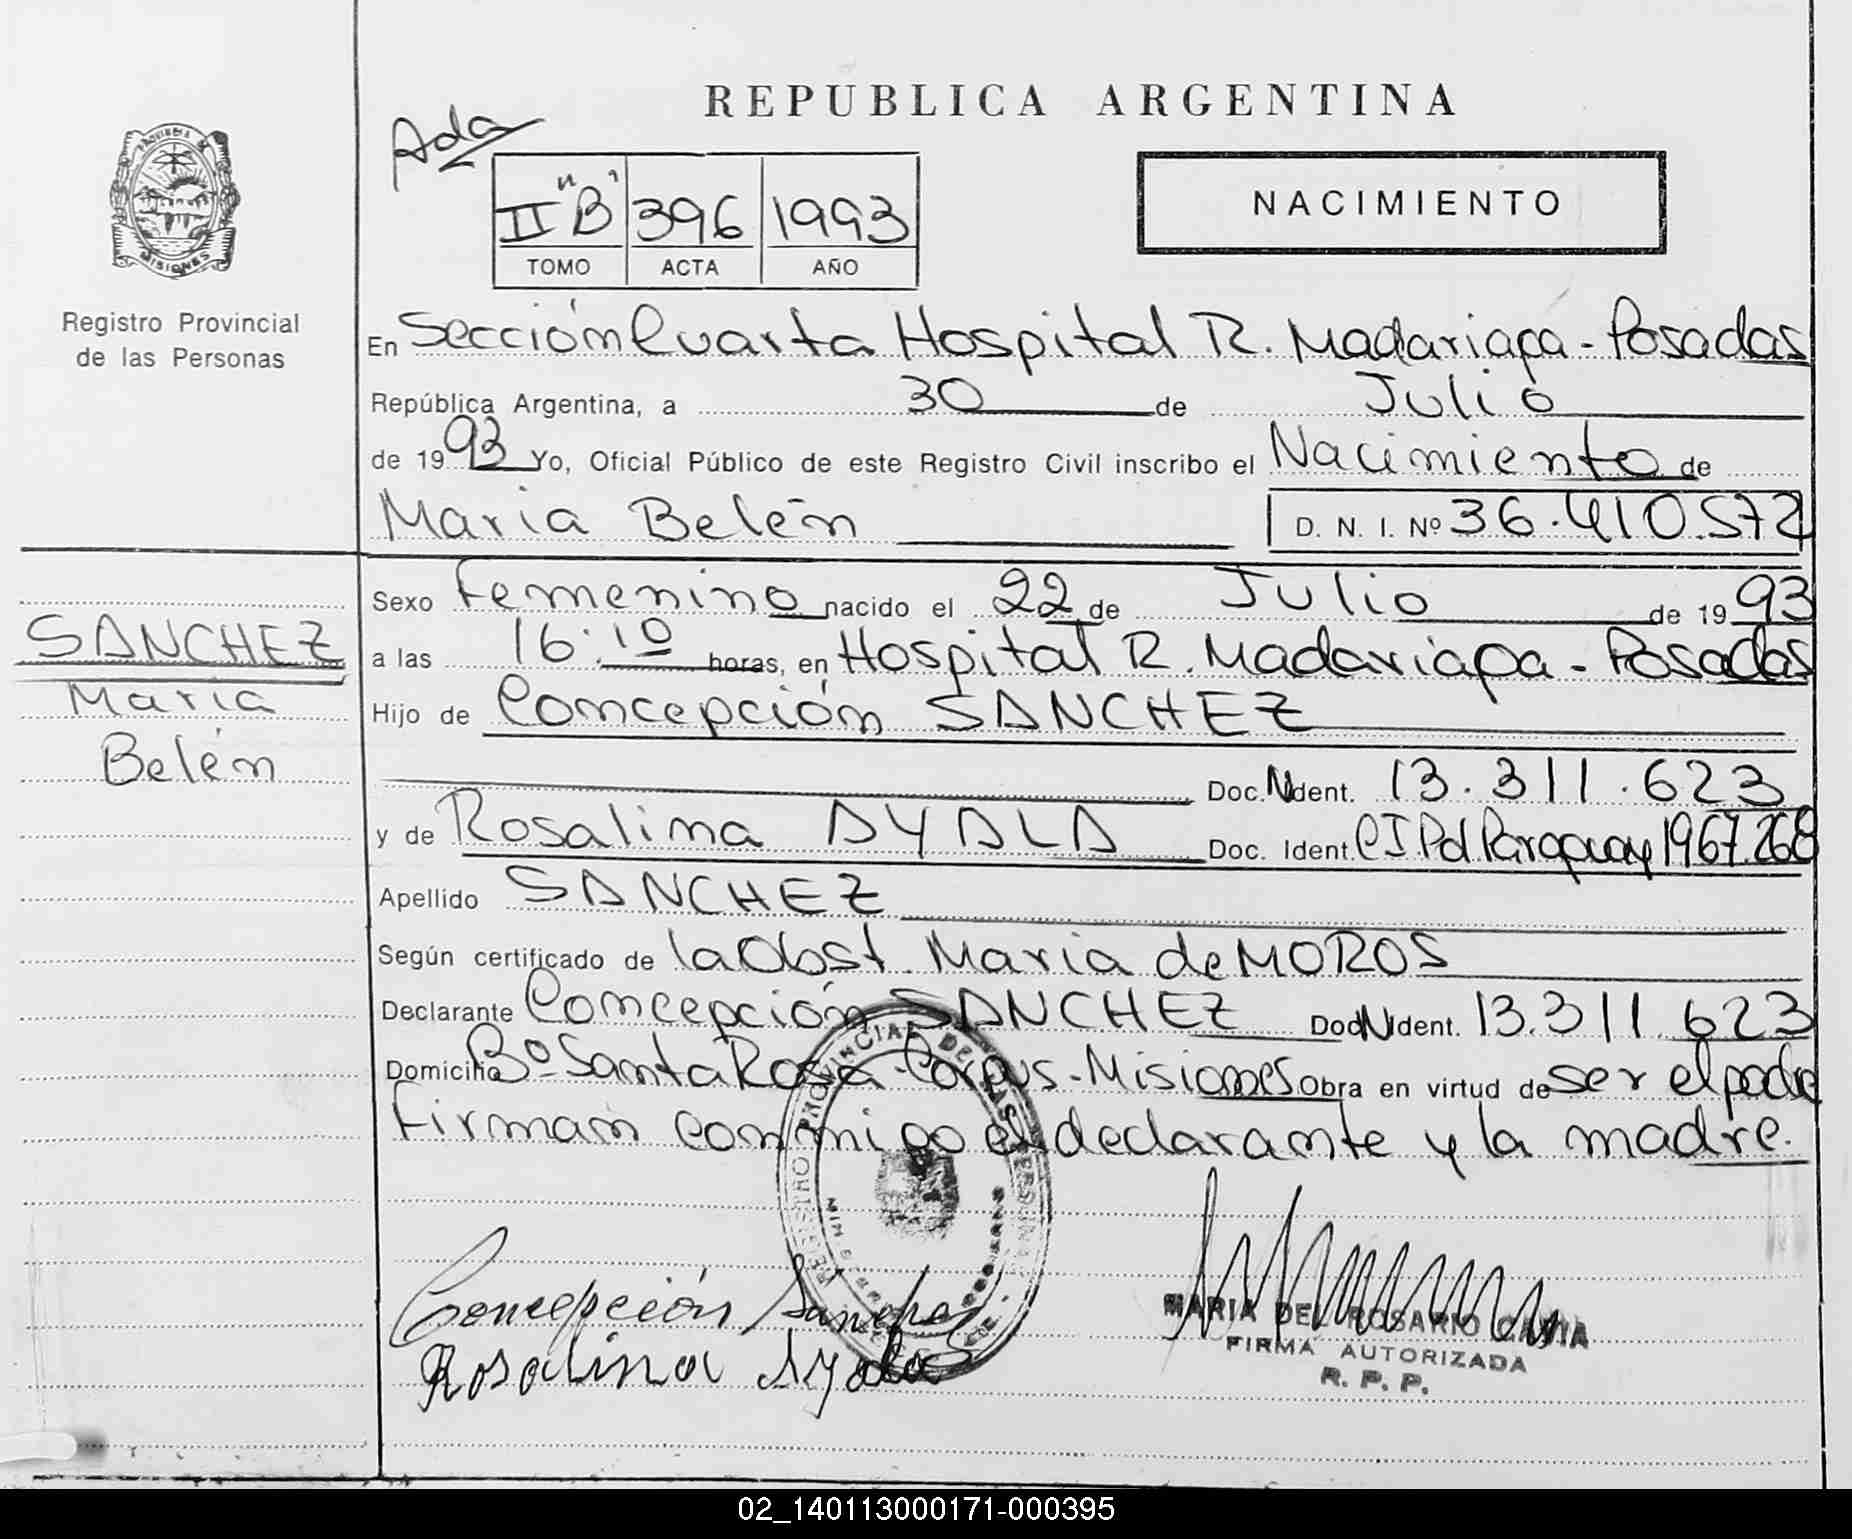 REPUBLICA ARGENTINA
Ada
II "B" 396 1993
TOMO ACTA AÑO
NACIMIENTO
PROVINCIA DE
MISIONES
Registro Provincial
de las Personas
En Sección Cuarta Hospital R. Madariaga - Posadas
República Argentina, a 30 de Julio
de 1993 Yo, Oficial Público de este Registro Civil inscribo el Nacimiento de
Maria Belén D. N. I. Nº 36.410.572
SANCHEZ
Maria
Belén
Sexo Femenino nacido el 22 de Julio de 1993
a las 16:10 horas, en Hospital R. Madariaga - Posadas
Hijo de Concepción SANCHEZ
Doc. Ident. 13.311.623
y de Rosalina AYALA Doc. Ident. CI Pol Paraguay 1967.268
Apellido SANCHEZ
Según certificado de la Obst. Maria de MOROS
Declarante Concepción SANCHEZ Doc. Ident. 13.311.623
Domicilio Bº Santa Rosa - Corpus - Misiones Obra en virtud de ser el padre
firman conmigo el declarante y la madre.
REGISTRO PROVINCIAL DE LAS PERSONAS
Concepción Sanchez
Rosalina Ayala
MARIA DEL ROSARIO
FIRMA AUTORIZADA
R. P. P.
02_140113000171-000395